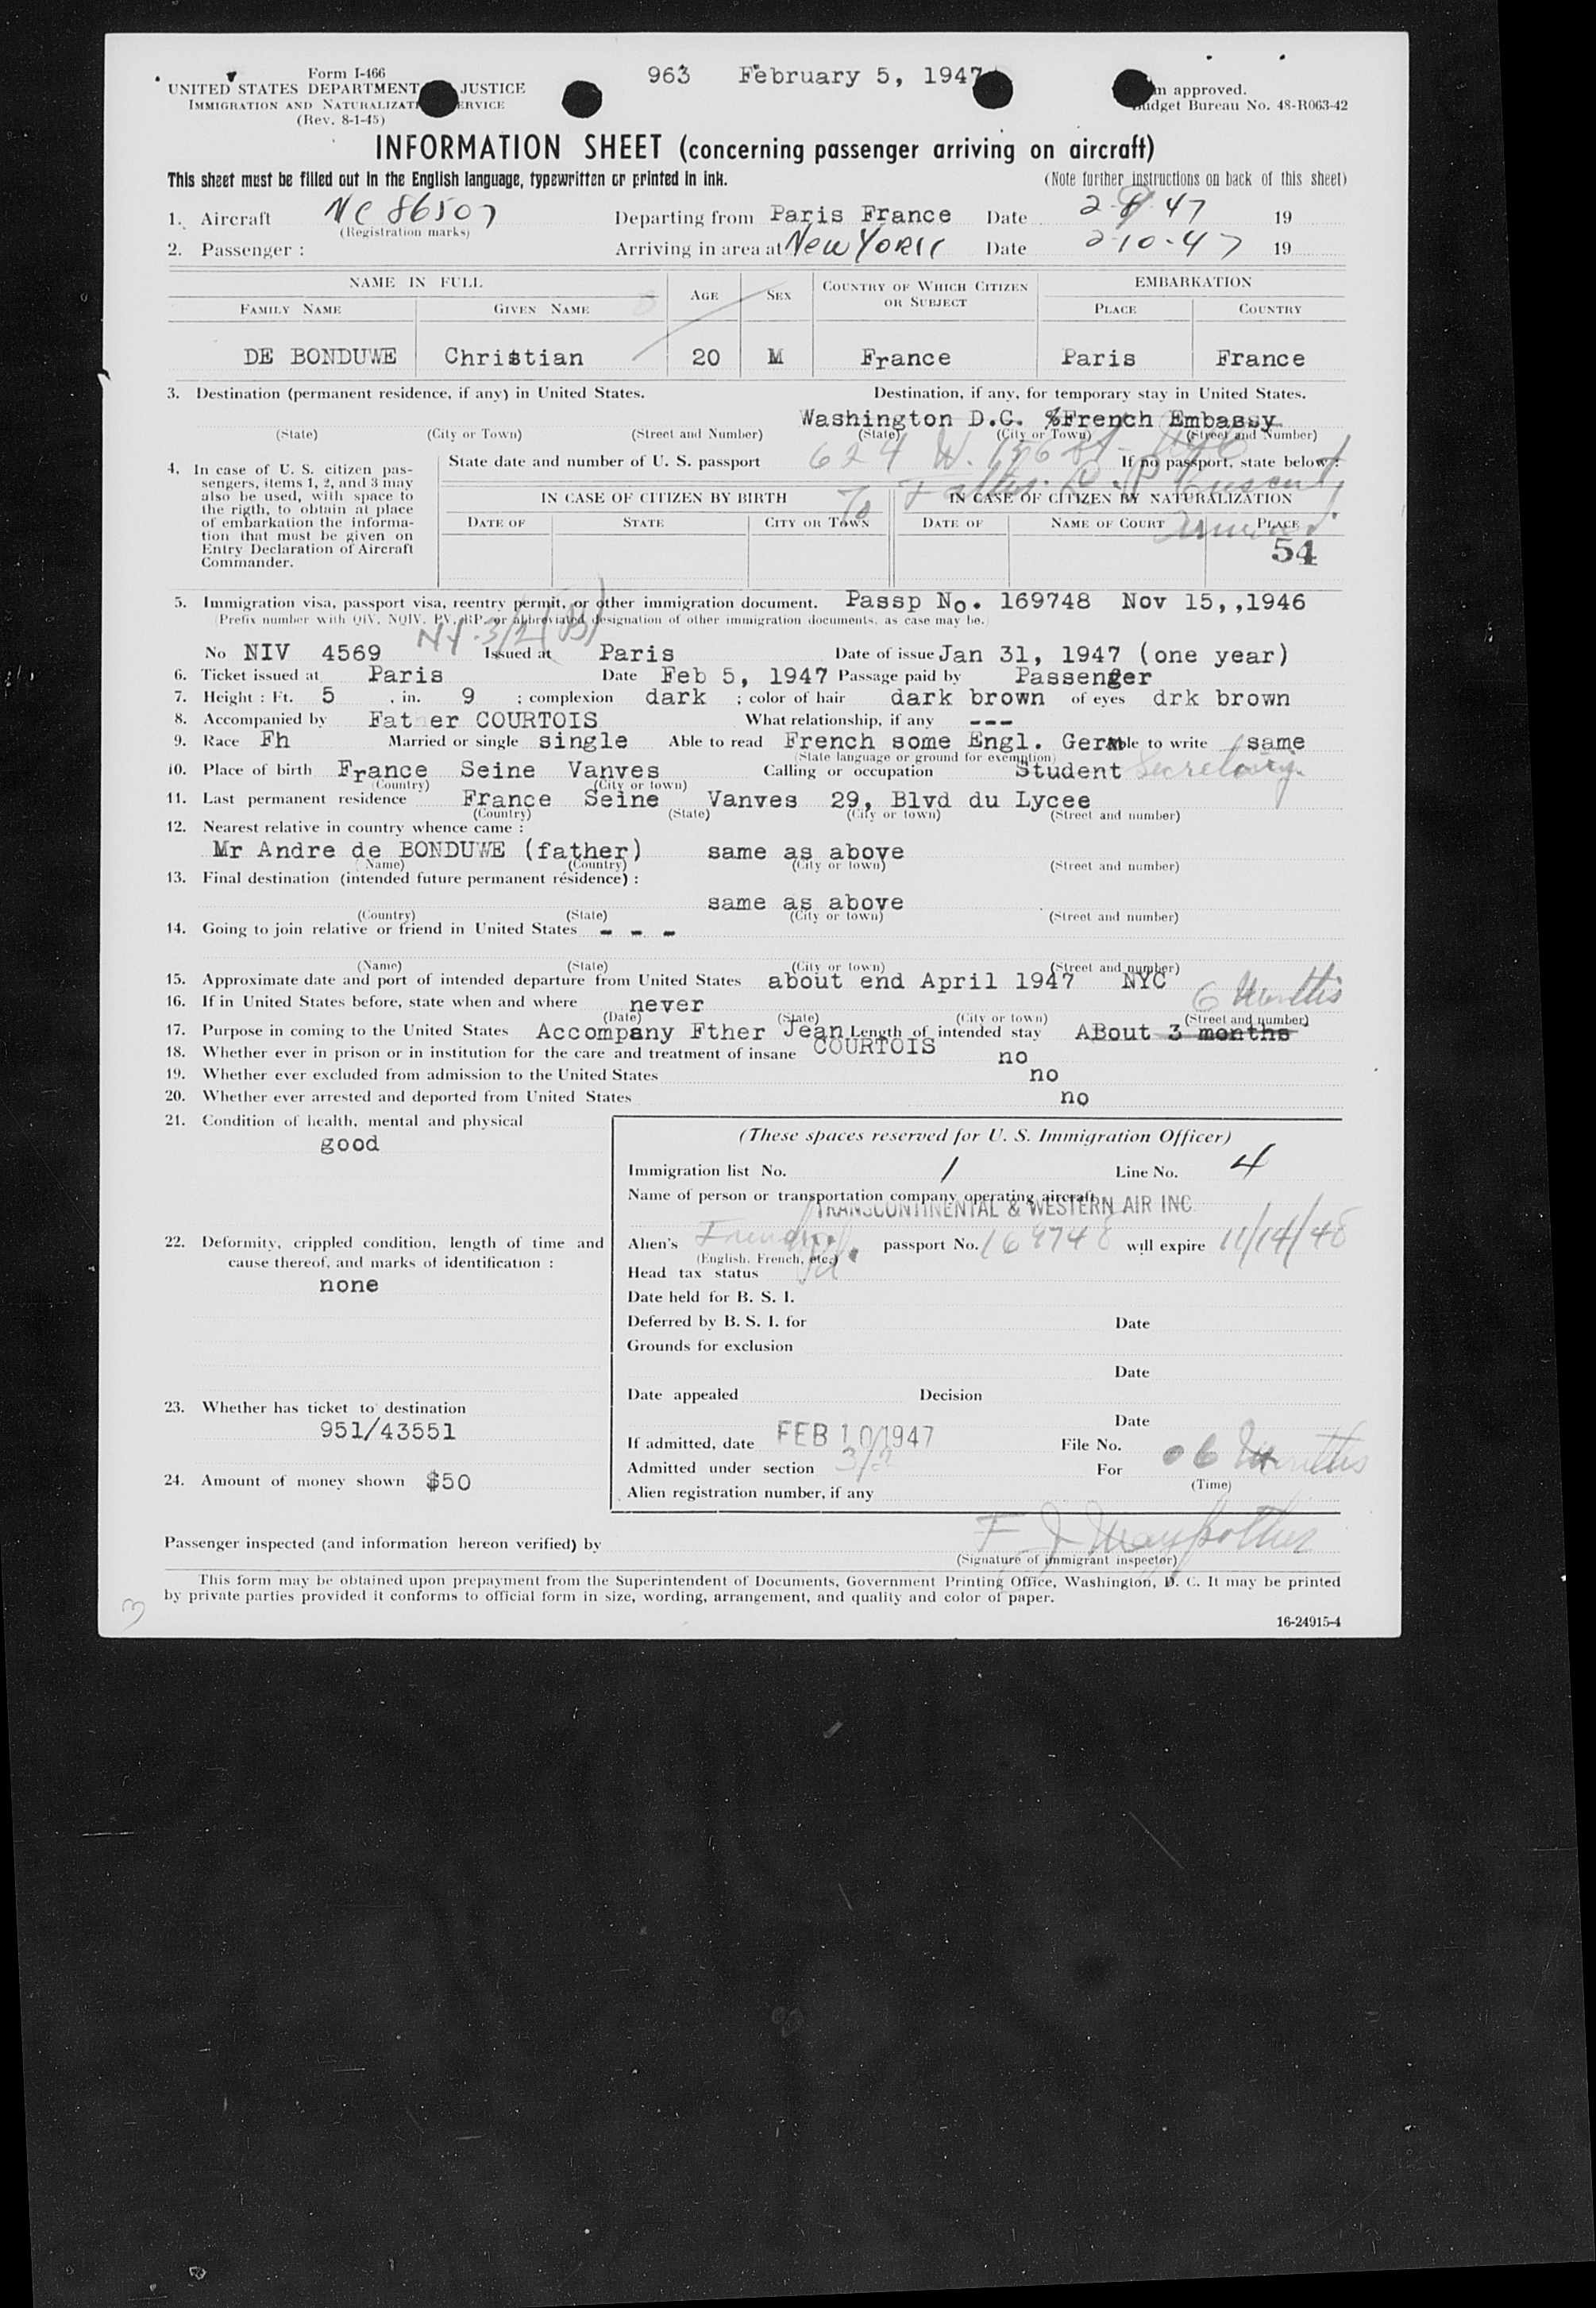 963 February 5, 1947
Form I-466
UNITED STATES DEPARTMENT JUSTICE
IMMIGRATION AND NATURALIZATI ERVICE
(Rev. 8-1-45)
m approved.
Budget Bureau No. 48-R063-42
INFORMATION SHEET (concerning passenger arriving on aircraft)
This sheet must be filled out in the English language, typewritten or printed in ink. (Note further instructions on back of this sheet)
1. Aircraft NC 86507 Departing from Paris France Date 2-8-47 19
(Registration marks)
2. Passenger : Arriving in area at New YORK Date 2-10-47 19
NAME IN FULL AGE SEX COUNTRY OF WHICH CITIZEN OR SUBJECT EMBARKATION
FAMILY NAME GIVEN NAME PLACE COUNTRY
DE BONDUWE Christian 20 M France Paris France
3. Destination (permanent residence, if any) in United States. Destination, if any, for temporary stay in United States.
Washington D.C. %French Embassy
(State) (City or Town) (Street and Number) (State) (City or Town) (Street and Number)
624 W. 156 St.
4. In case of U. S. citizen pas-
sengers, items 1, 2, and 3 may
also be used, with space to
the rigth, to obtain at place
of embarkation the informa-
tion that must be given on
Entry Declaration of Aircraft
Commander.
State date and number of U. S. passport If no passport, state below :
To Father
IN CASE OF CITIZEN BY BIRTH IN CASE OF CITIZEN BY NATURALIZATION
DATE OF STATE CITY OR TOWN DATE OF NAME OF COURT PLACE
54
5. Immigration visa, passport visa, reentry permit, or other immigration document. Passp No. 169748 Nov 15,,1946
(Prefix number with QIV, NQIV, PV, RP, or abbreviated designation of other immigration documents, as case may be.)
NY-3/2(B)
No NIV 4569 Issued at Paris Date of issue Jan 31, 1947 (one year)
6. Ticket issued at Paris Date Feb 5, 1947 Passage paid by Passenger
7. Height : Ft. 5 , in. 9 ; complexion dark ; color of hair dark brown of eyes drk brown
8. Accompanied by Fat er COURTOIS What relationship, if any ---
9. Race Fh Married or single single Able to read French some Engl. Germ Able to write same
(State language or ground for exemption)
10. Place of birth France Seine Vanves Calling or occupation Student Secretary
(Country) (City or town)
11. Last permanent residence France Seine Vanves 29, Blvd du Lycee
(Country) (State) (City or town) (Street and number)
12. Nearest relative in country whence came :
Mr Andre de BONDUWE (father) same as above
(Name) (Country) (City or town) (Street and number)
13. Final destination (intended future permanent résidence) :
same as above
(Country) (State) (City or town) (Street and number)
14. Going to join relative or friend in United States - - -
(Name) (State) (City or town) (Street and number)
15. Approximate date and port of intended departure from United States about end April 1947 NYC
16. If in United States before, state when and where never 6 Months
(Date) (State) (City or town) (Street and number)
17. Purpose in coming to the United States Accompany Fther Jean COURTOIS Length of intended stay ABout 3 months
18. Whether ever in prison or in institution for the care and treatment of insane no
19. Whether ever excluded from admission to the United States no
20. Whether ever arrested and deported from United States no
21. Condition of health, mental and physical
good
22. Deformity, crippled condition, length of time and
cause thereof, and marks of identification :
none
23. Whether has ticket to destination
951/43551
24. Amount of money shown $50
(These spaces reserved for U. S. Immigration Officer)
Immigration list No. 1 Line No. 4
Name of person or transportation company operating aircraft
TRANSCONTINENTAL & WESTERN AIR INC
Alien's French passport No. 169748 will expire 11/14/48
(English, French, etc.)
Head tax status
Date held for B. S. I.
Deferred by B. S. I. for Date
Grounds for exclusion
Date
Date appealed Decision
Date
If admitted, date FEB 10 1947 File No.
Admitted under section 3/2 For 06 Months
(Time)
Alien registration number, if any
Passenger inspected (and information hereon verified) by
(Signature of immigrant inspector)
This form may be obtained upon prepayment from the Superintendent of Documents, Government Printing Office, Washington, D. C. It may be printed
by private parties provided it conforms to official form in size, wording, arrangement, and quality and color of paper.
3
16-24915-4